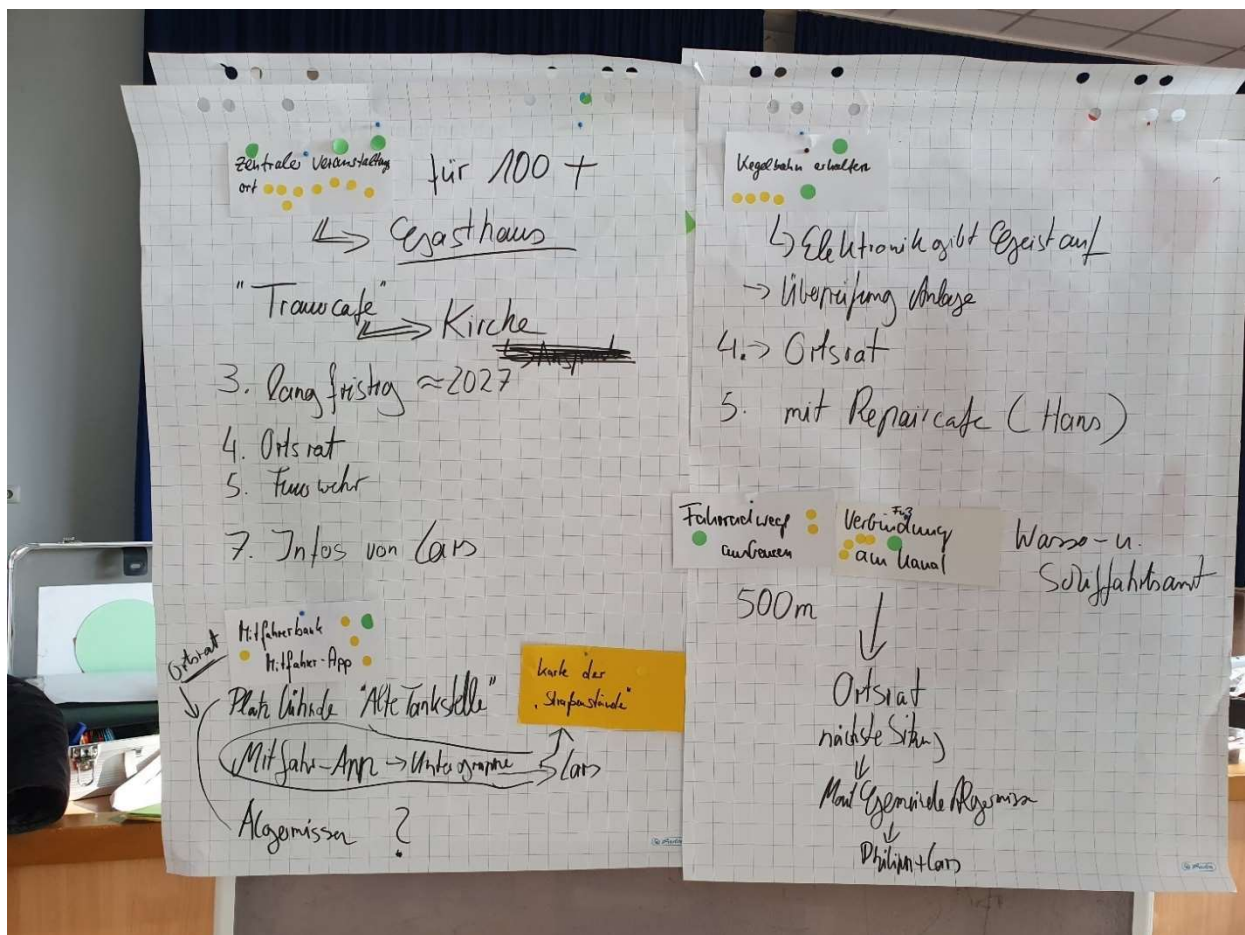 Zentrale Veranstaltung
ort
für 100 +
Gasthaus
"Trauercafe"
Kirche
3. langfristig ≈2027
4. Ortsrat
5. Feuerwehr
7. Infos von Lars
Mitfahrerbank
Mitfahrer-App
Ortsrat
Platz Lühnde "Alte Tankstelle"
Mitfahr-App → Untergruppe
Lars
Algermissen ?
Karte der
"Straßenstände"
Kegelbahn erhalten
↳ Elektronik gibt Geist auf
→ Überprüfung Anlage
4. → Ortsrat
5. mit Repaircafe (Hans)
Fahrradweg
ausbauen
Fuß
Verbindung
am Kanal
Wasser- u.
Schiffahrtsamt
500m
Ortsrat
nächste Sitzung
Gemeinde Algermissen
Philipp + Lars